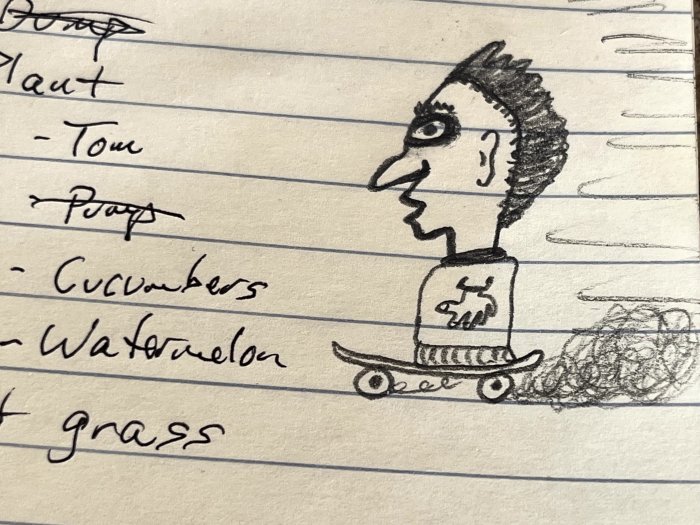 Plant
- Tom
- Pump
- Cucumbers
- Watermelon
grass